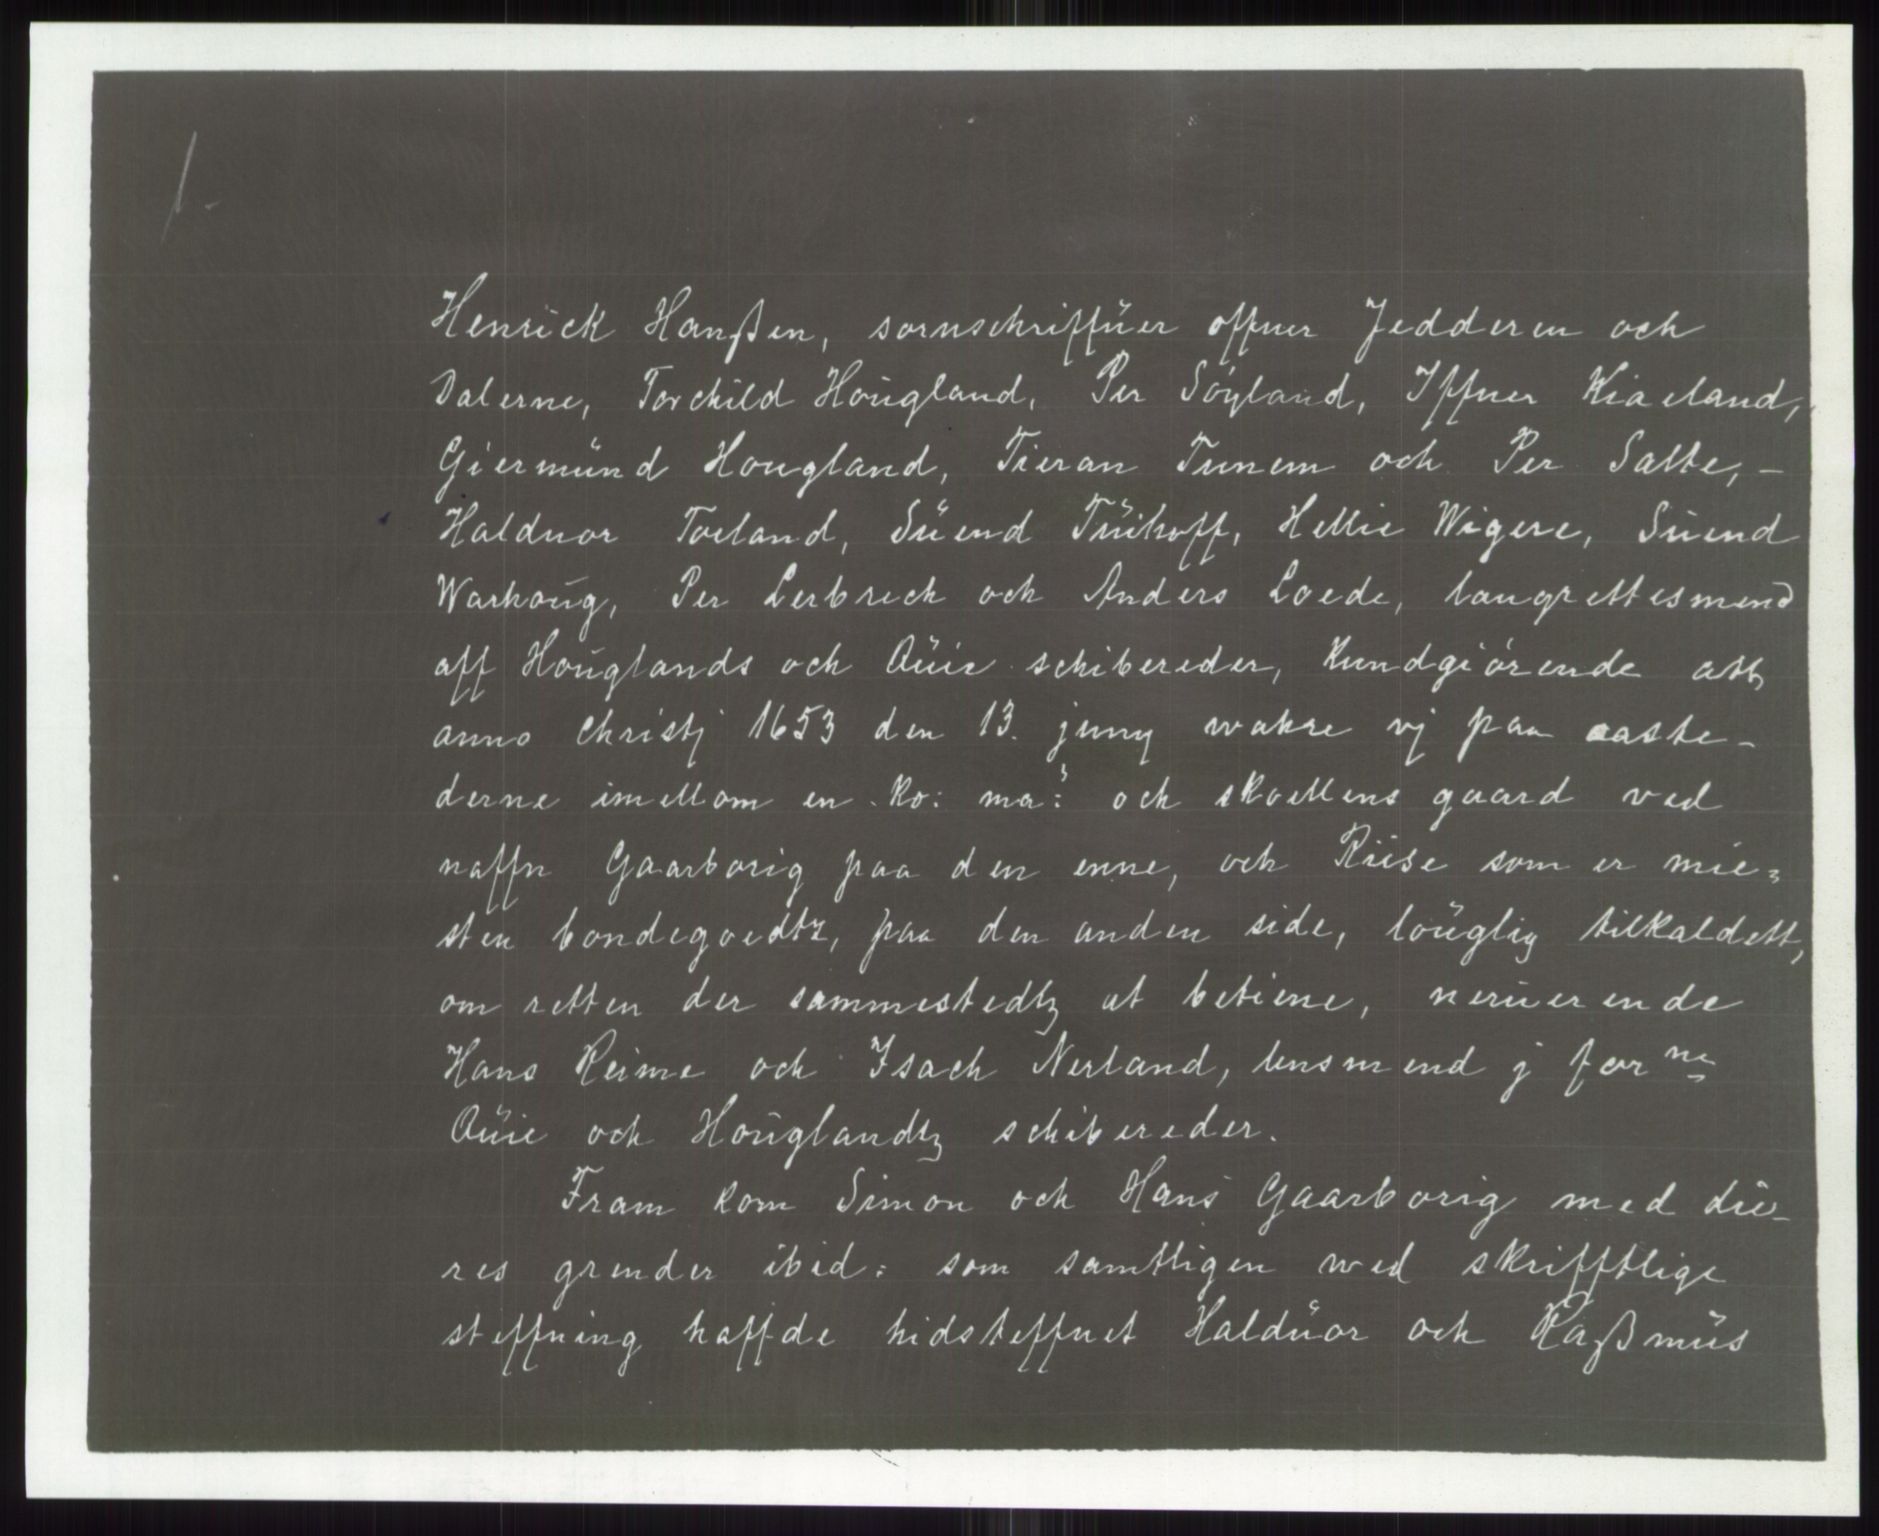 1.
Henrick Hanßen, sornschriffüer offuer Jedderen och
Dalerne, Torchild Hoŭgland, Per Söyland, Iffuer Kiaeland,
Giermünd Hougland, Tieran Tunem och Per Salte, -
Halduor Toeland, Süend Tüihoff, Hellie Wigere, Suend
Warhoŭg, Per Lerbreck och Anders Loede, laugrettesmend
aff Hoŭglands och Qüie schibereder, kundgiörende att
anno Christj 1653 den 13. juny wahre vj paa aaste-
derne imellom en ko: ma: och skoellens gaard ved
naffn Gaarborig paa den enne, och Riise som er mie-
sten bondegoedtz, paa den anden side, loŭglig tilkaldett,
om retten der sammestedtz at betiene, neruerende
Hans Reime och Isach Nerland, lensmend j forne
Qüie och Hoŭglandtz schibereder.
Fram kom Simon och Hans Gaarborig med die-
res grender ibid: som samtligen med skrifftlige
steffning haffde hidsteffnet Haldüor och Raßmŭs